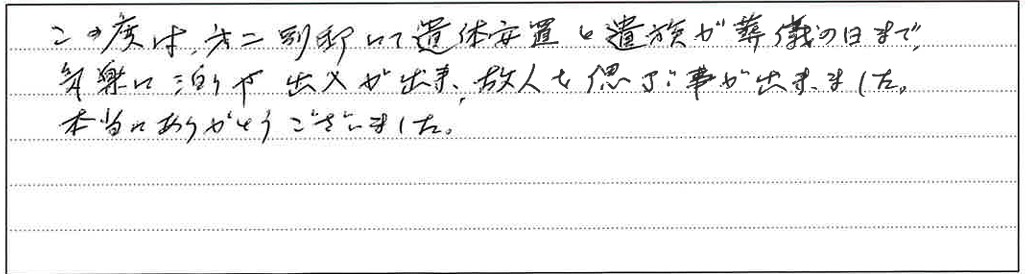 この度は、オ二別邸にて遺体安置と遺族が葬儀の日まで、
気楽に泊りや出入が出来、故人を偲ぶ事が出来ました。
本当にありがとうございました。